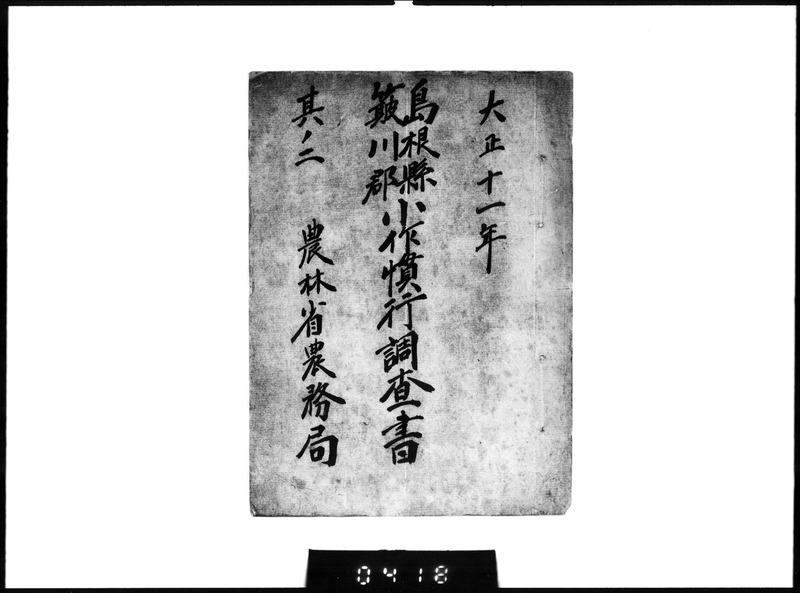 大正十一年
島根縣
簸川郡
小作慣行調査書
其ノ二
農林省農務局
0418